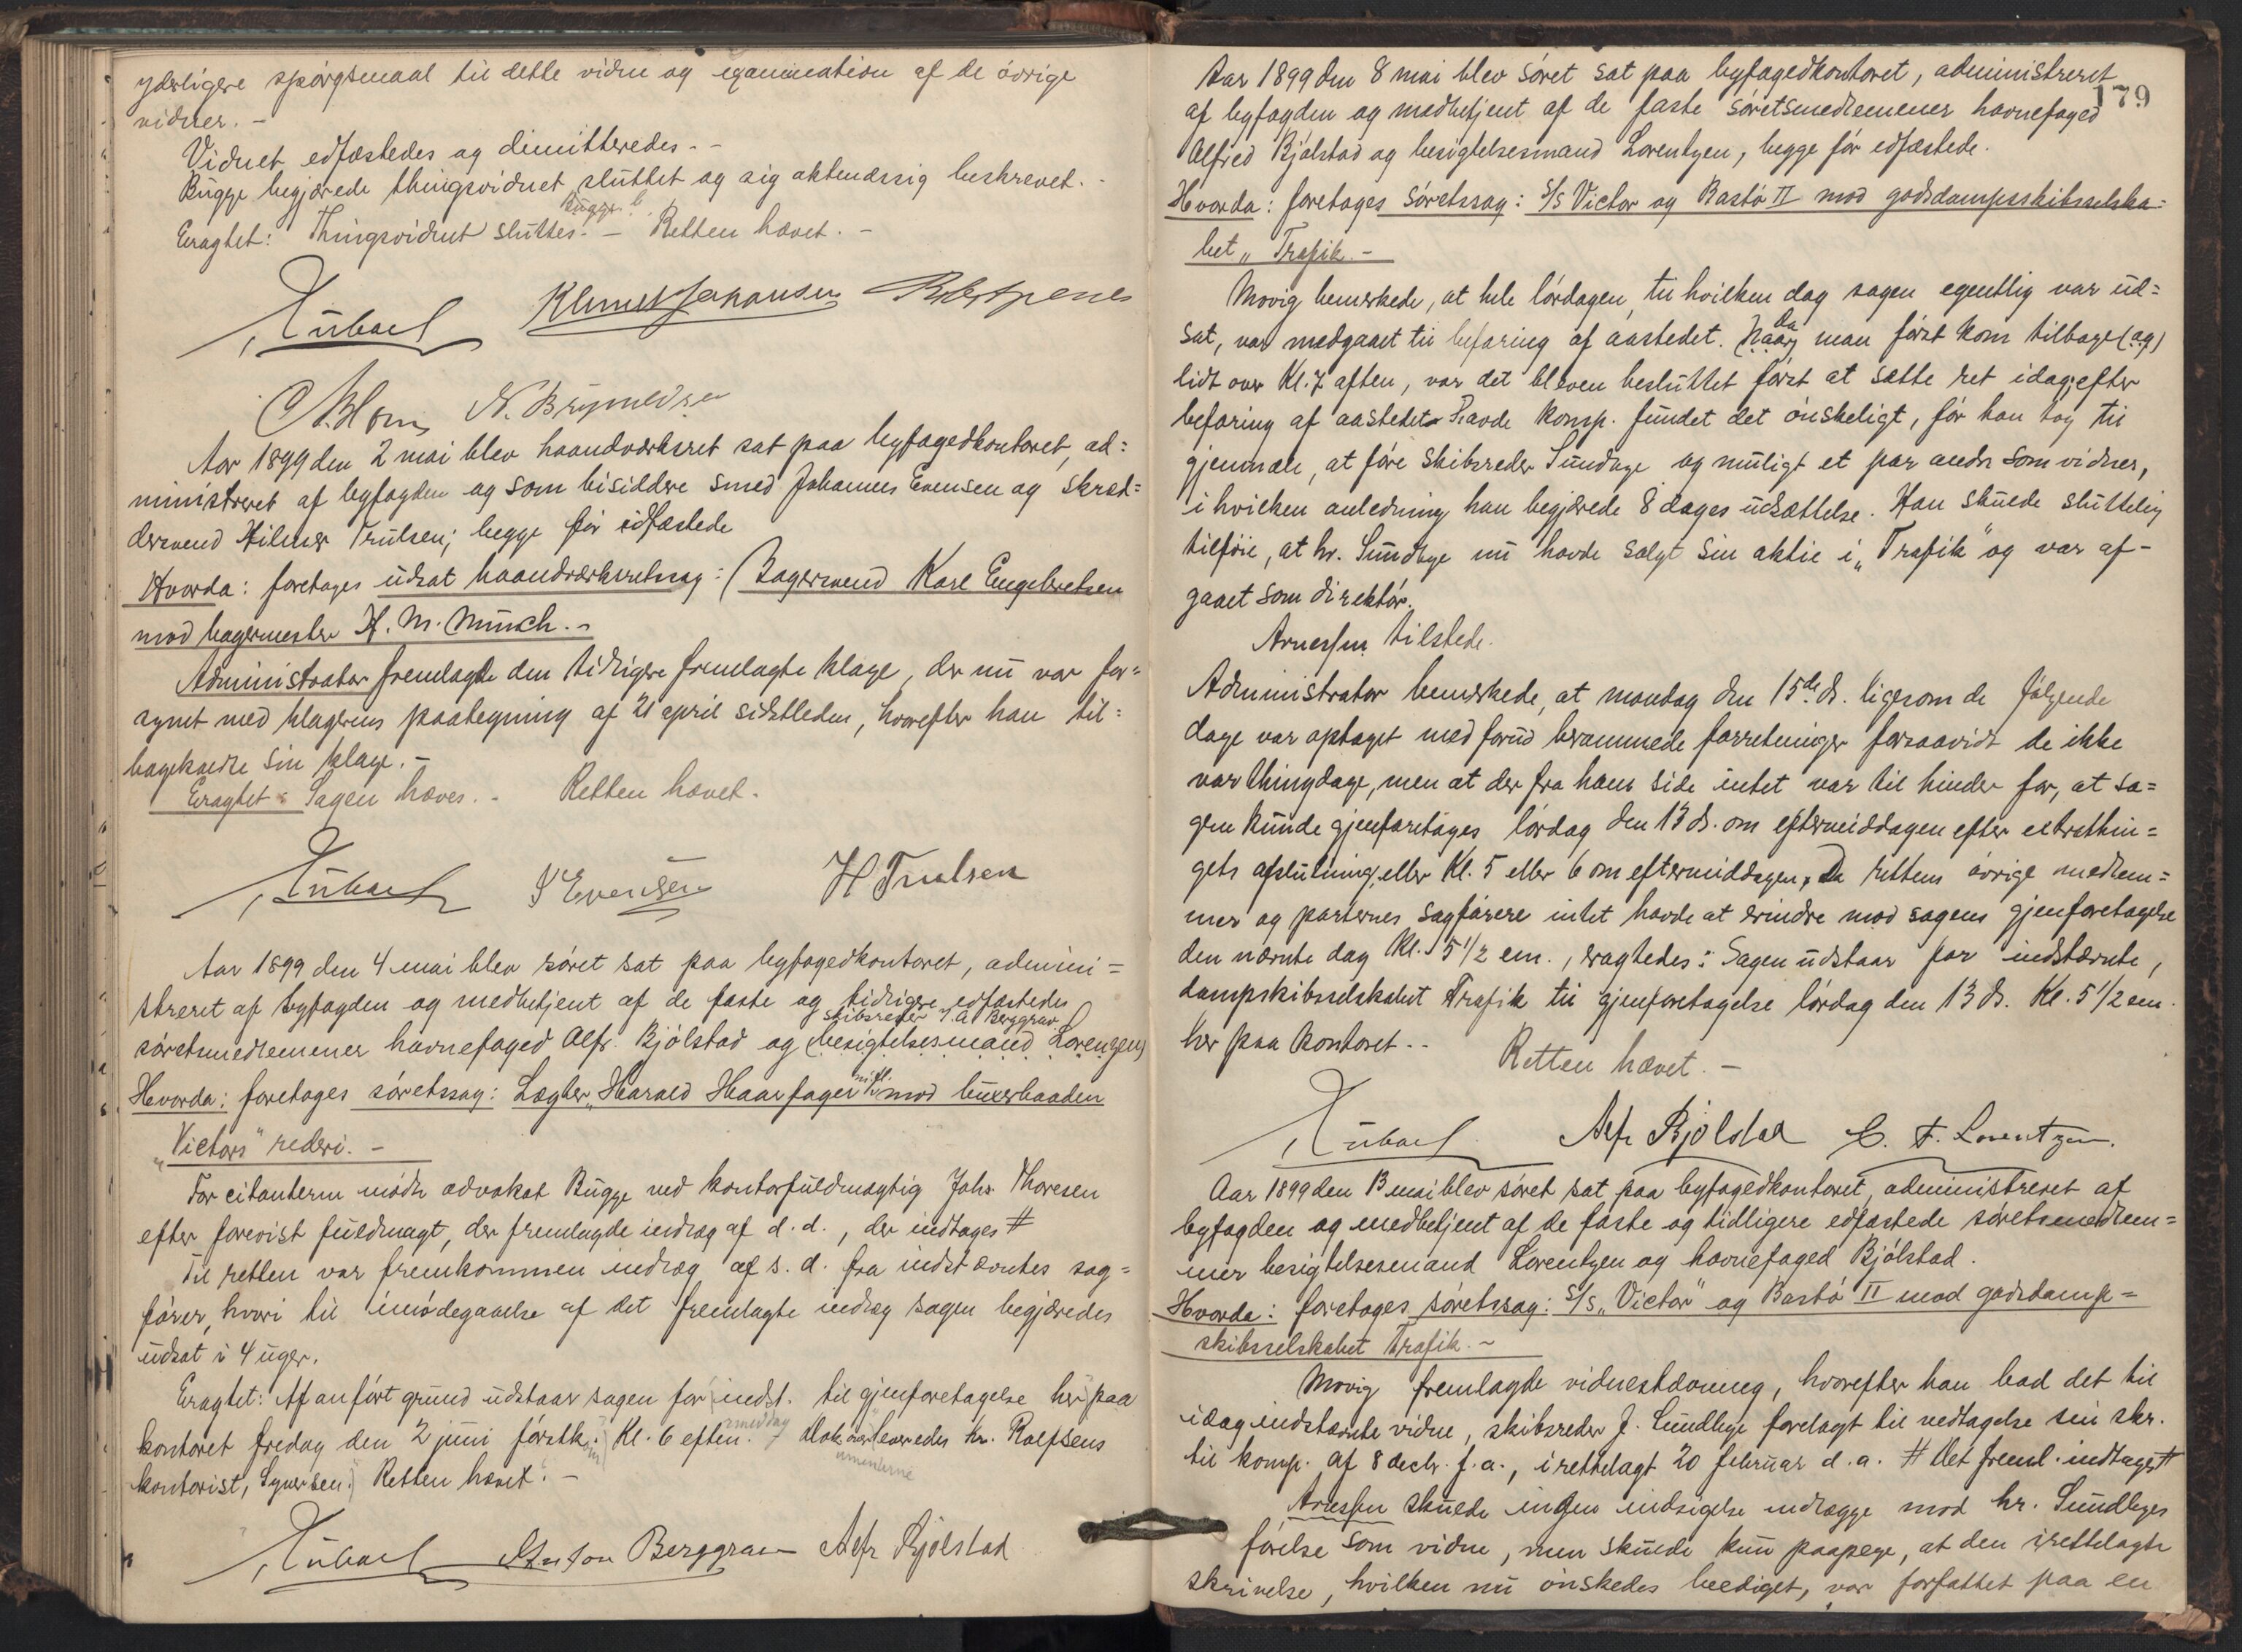 yderligere spörgsmaal til dette vidne og examination af de övrige
vidner. –
Vidnet edfæstedes og dimitteredes. –
Bugge begjærede thingsvidnet sluttet og sig aktmæssig beskrevet. –
Eragtet: Thingsvidnet sluttes. – Retten hævet. –
A. Hom N. Brynildsen
Aar 1899 den 2 mai blev haandværksret sat paa byfogedkontoret, ad=
ministreret af byfogden og som bisiddere smed Johannes Evensen og skræd=
dersvend Hilmer Trulsen; begge før edfæstede
Hvorda: foretages udsat haandværksretssag: (Bagersvend Karl Engebretsen
mod bagermester H. M. Münch. –
Administrator fremlagde den tidligere fremlagte klage, der nu var for=
synet med klagerens paategning af 21 april sidstleden, hvorefter han til=
bagekaldte sin klage. –
Eragtet: Sagen hæves. – Retten hævet. –
J Evensen H Trulsen
Aar 1899 den 4 mai blev söret sat paa byfogedkontoret, admini=
streret af byfogden og medbetjent af de faste og tidligere edfæstede
skibsreder J. A. Berggrav
söretsmedlemmer havnefoged Alfr. Bjölstad og (besigtelsesmand Lorenzen)
Hvorda: foretages söretssag: Lægter „Harald Haarfager" mod buxerbaaden
„Victors" rederi. –
For citanterne mödte advokat Bugge ved kontorfuldmægtig Johs Thoresen
efter forevist fuldmagt, der fremlagde indlæg af d. d., der indtages #
Til retten var fremkommen indlæg af s. d. fra indstævntes sag=
förer, hvori til imödegaaelse af det fremlagte indlæg sagen begjæredes
udsat i 4 uger.
Eragtet: Af anfört grund udstaar sagen for indst. til gjenforetagelse her paa
kontoret fredag den 2 juni förstk. Kl. 6 eftm. Dok. overleveredes hr. Roefsens
kontorist, Syversen. Retten hævet. –
Anton Berggrav Alfr Bjölstad
179
Aar 1899 den 8 mai blev söret sat paa byfogedkontoret, administreret
af byfogden og medbetjent af de faste söretsmedlemmer havnefoged
Alfred Bjölstad og besigtelsesmand Lorentzen, begge för edfæstede.
Hvorda: foretages söretssag: S/S Victor og Bastö II mod godsdampskibsselska=
bet „Trafik. –
Movig bemerkede, at hele lördagen, til hvilken dag sagen egentlig var ud=
sat, var medgaaet til befaring af aastedet. Da (Naar) man först kom tilbage (og)
lidt over Kl. 7 aften, var det bleven besluttet först at sætte ret idag, efter
befaring af aastedet. Havde komp. fundet det önskeligt, för han tog til
gjenmæle, at före skibsreder Sundbye og muligt et par andre som vidner,
i hvilken anledning han begjærede 8 dages udsættelse. Han skulde sluttelig
tilföie, at hr. Sundbye nu havde solgt sin aktie i „Trafik" og var af-
gaaet som direktör.
Arnessen tilstede.
Administrator bemerkede, at mandag den 15de ds. ligesom de fölgende
dage var optaget med forud berammede forretninger forsaavidt de ikke
var thingdage, men at der fra hans side intet var til hinder for, at sa=
gen kunde gjenforetages lördag den 13 ds. om eftermiddagen efter extrathin=
gets afslutning, eller Kl. 5 eller 6 om eftermiddagen. Da rettens övrige medlem=
mer og parternes sagförere intet havde at erindre mod sagens gjenforetagelse
den nævnte dag Kl. 5 1/2 em., eragtedes: Sagen udstaar for indstævnte,
dampskibsselskabet Trafik til gjenforetagelse lördag den 13 ds. Kl. 5 1/2 em.
her paa kontoret. –
Retten hævet. –
Alfr Bjölstad C. F. Lorentzen.
Aar 1899 den 13 mai blev söret sat paa byfogedkontoret, administreret af
byfogden og medbetjent af de faste og tidligere edfæstede söretsmedlem=
mer besigtelsesmand Lorentzen og havnefoged Bjölstad.
Hvorda: foretages söretssag: S/S „Victor" og Bastö II mod godsdamp=
skibsselskabet Trafik. –
Movig fremlagde vidnestævning, hvorefter han bad det til
idag indstævnte vidne, skibsreder J. Sundbye forelagt til vedtagelse sin skr.
til komp. af 8 decbr. f. a., irettelagt 20 februar d. a. # Det freml. indtages #
Arnessen skulde ingen indsigelse indlægge mod hr. Sundbyes
förelse som vidne, men skulde kun paapege, at den irettelagte
skrivelse, hvilken nu önskedes beediget, var forfattet paa en